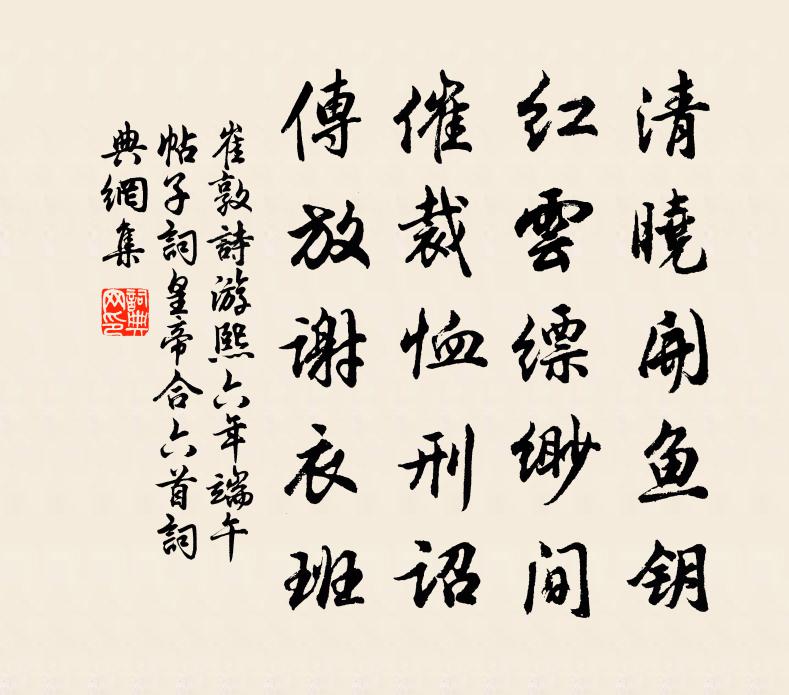 清曉開魚钥
红雲縹緲間
催裁恤刑詔
傳放謝衣班
崔敦詩游熙六年端午
帖子詞皇帝合六首詞
典網集
詞典網印